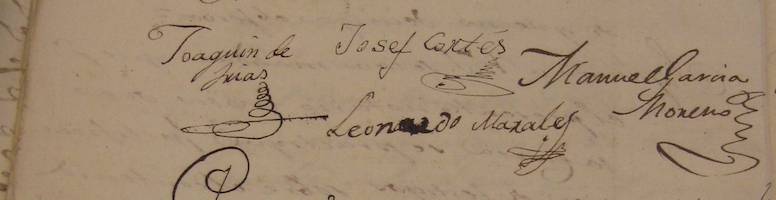 Joaquin de
frias
Josef Cortés
Manuel Garcia
Moreno
Leonardo Morales